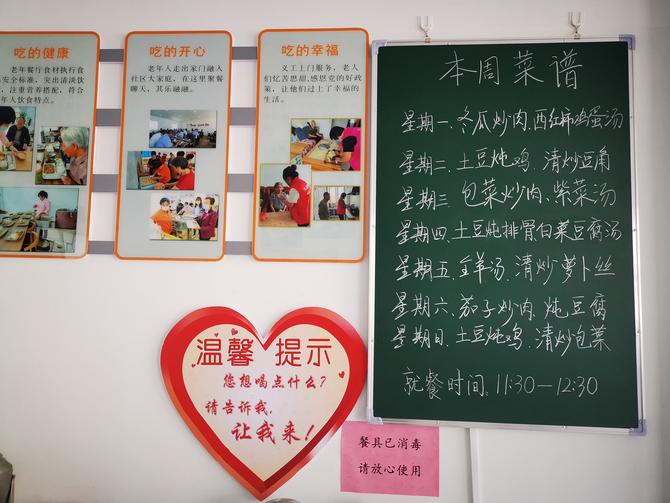 吃的健康
老年餐厅食材执行食
安全标准，突出清淡饮
，注重营养搭配，符合
年人饮食特点。
吃的开心
老年人走出家门融入
社区大家庭，在这里聚餐
聊天，其乐融融。
吃的幸福
义工上门服务，老人
们忆苦思甜，感恩党的好政
策，让他们过上了幸福的
生活。
本周菜谱
星期一、冬瓜炒肉、西红柿鸡蛋汤
星期二、土豆炖鸡、清炒豆角
星期三、包菜炒肉、紫菜汤
星期四、土豆炖排骨白菜豆腐汤
星期五、全羊汤、清炒萝卜丝
星期六、茄子炒肉、炖豆腐
星期日、土豆炖鸡、清炒包菜
就餐时间：11:30—12:30
温馨提示
您想喝点什么？
请告诉我，
让我来！
餐具已消毒
请放心使用